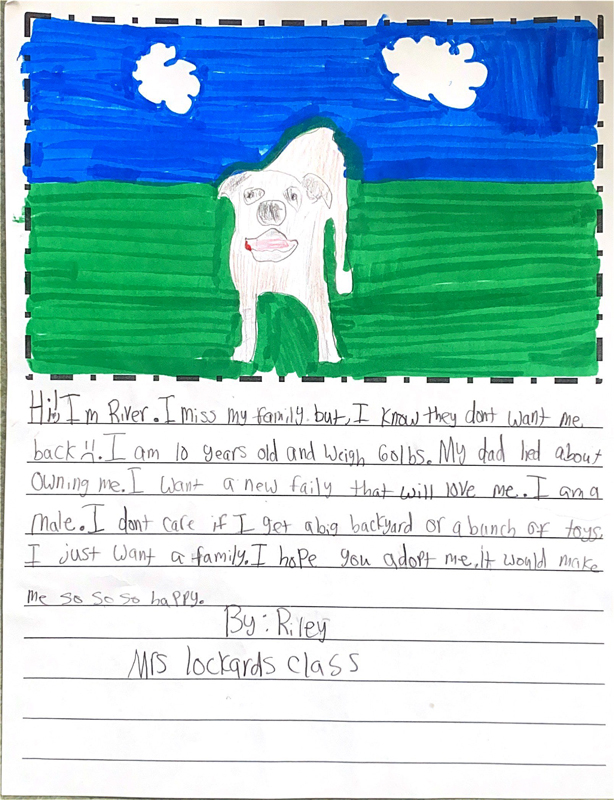 Hi! I'm River. I miss my family. but, I know they dont want me
back :(. I am 10 years old and weigh 60lbs. My dad lied about
owning me. I want a new faily that will love me.. I am a
male. I dont care if I get a big backyard or a bunch of toys.
I just want a family. I hope you adopt me. It would make
me so so so happy.
By: Riley
Mrs lockards class